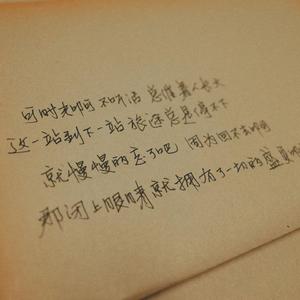 可时光啊可不听话 总催着人长大
这一站到下一站旅途总是停不下
就慢慢的忘了吧 因为回不去啊
那闭上眼睛就拥有了一切的盛夏